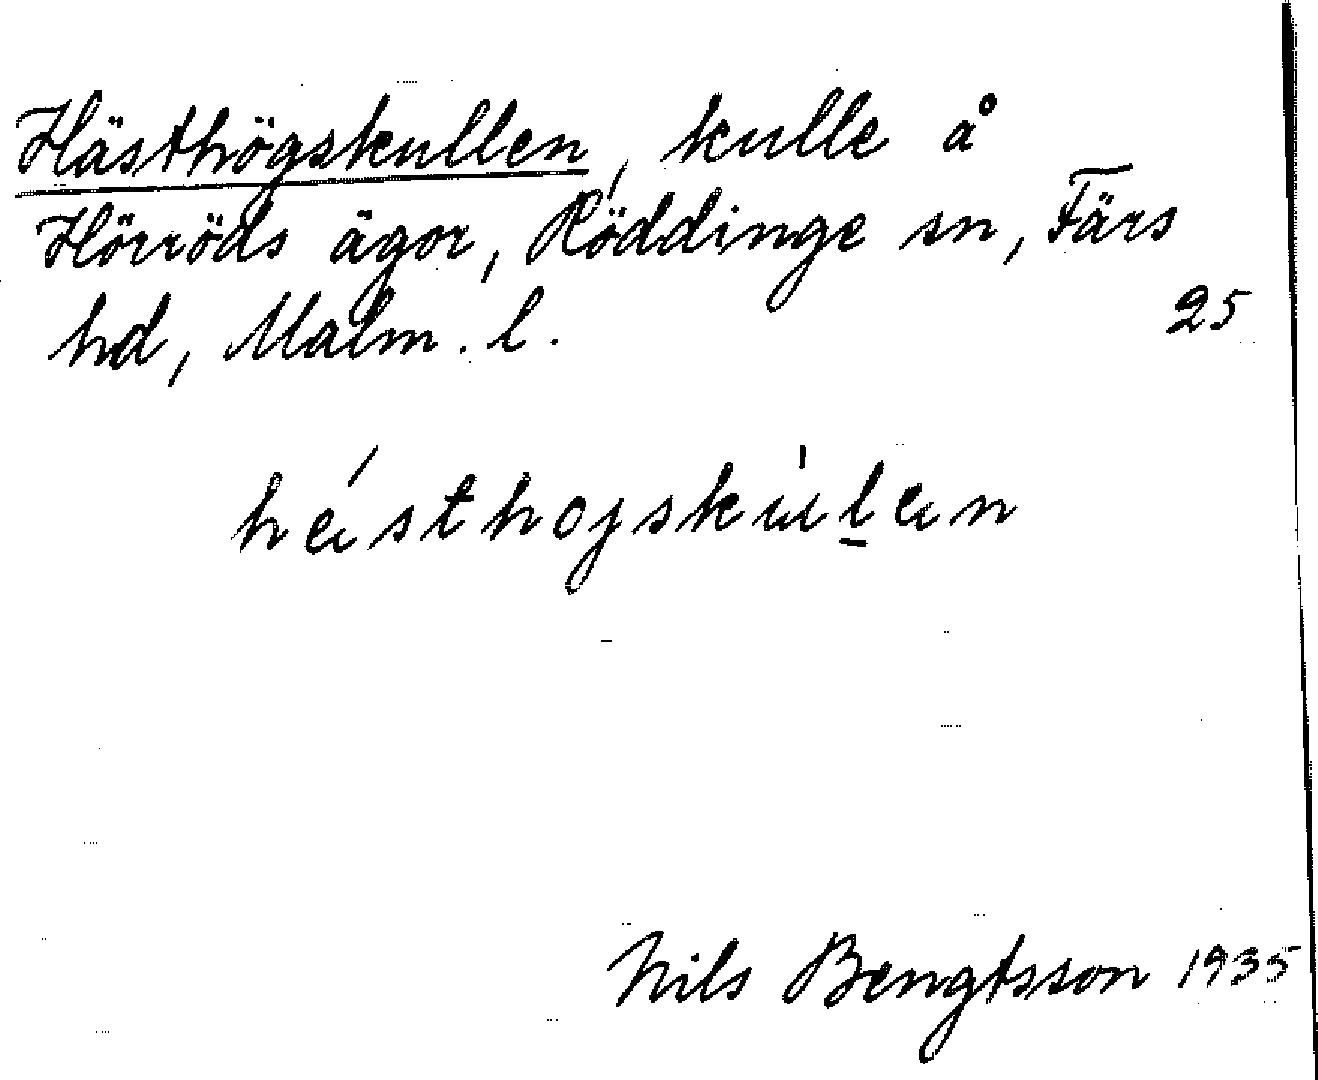 Hästhögskullen, kulle å
Hörröds ägor, Röddinge sn, Färs
hd, Malm. l.
25
hästhojskulen
Nils Bengtsson 1935